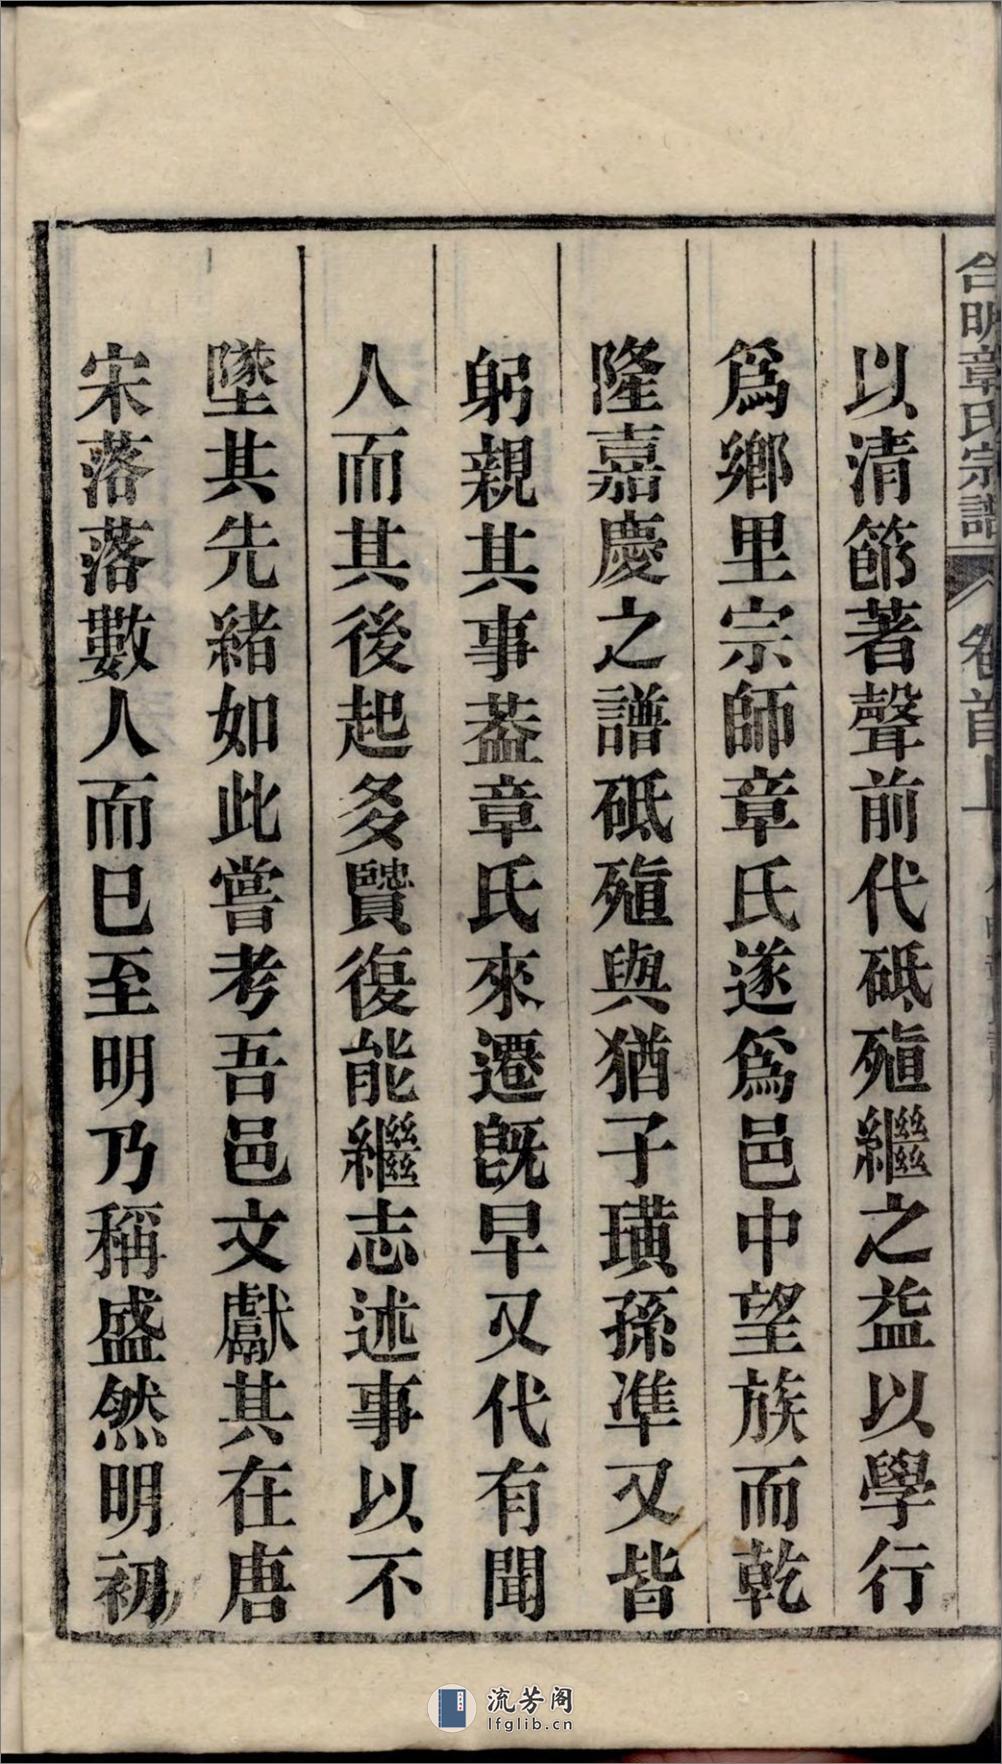 合明章氏宗譜 卷首上
以清節著聲前代砥殖繼之益以學行
爲鄉里宗師章氏遂爲邑中望族而乾
隆嘉慶之譜砥殖與猶子璜孫準又皆
躬親其事葢章氏來遷旣早又代有聞
人而其後起多賢復能繼志述事以不
墜其先緒如此嘗考吾邑文獻其在唐
宋落落數人而已至明乃稱盛然明初
流芳阁
lfglib.cn